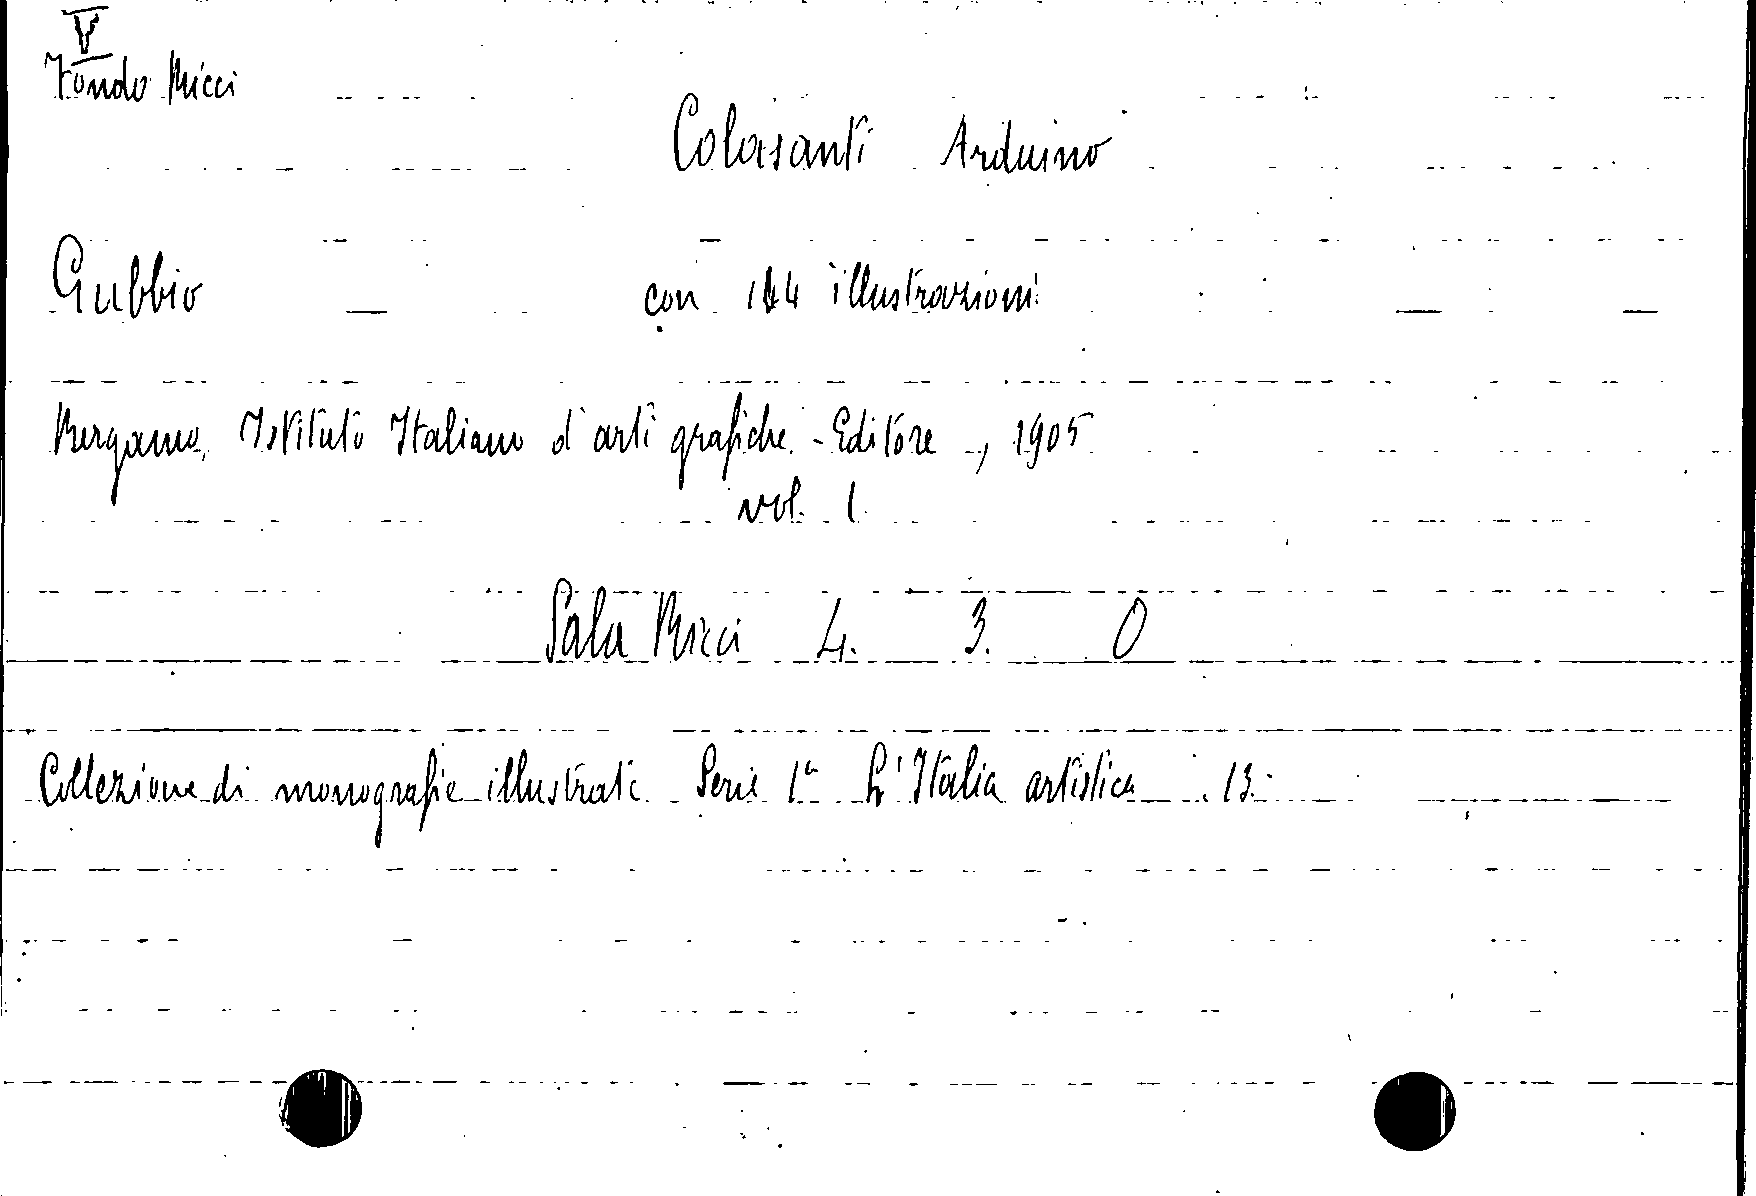 V
Fondo Ricci
Colasanti Arduino
Gubbio con 144 illustrazioni
Bergamo, Istituto Italiano d'arti grafiche - Editore, 1905
vol. 1
Sala Ricci 4. 3. 0
Collezione di monografie illustrate Serie 1ª L'Italia artistica 13.